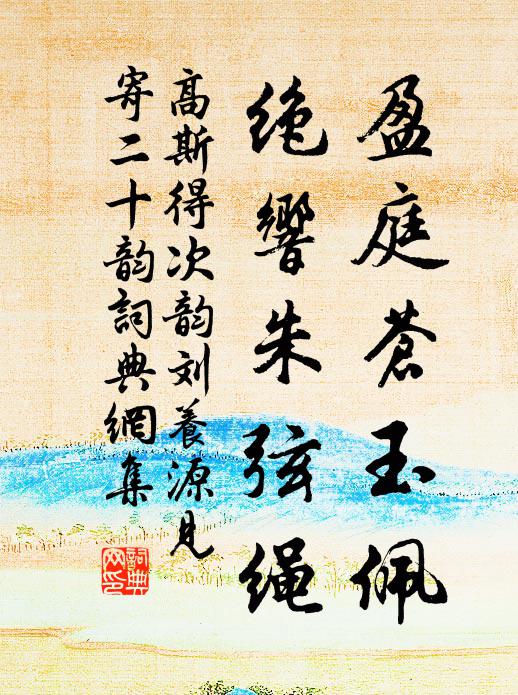 盈庭苍玉佩
绝響朱弦绳
高斯得次韵刘養源見
寄二十韵詞典網集